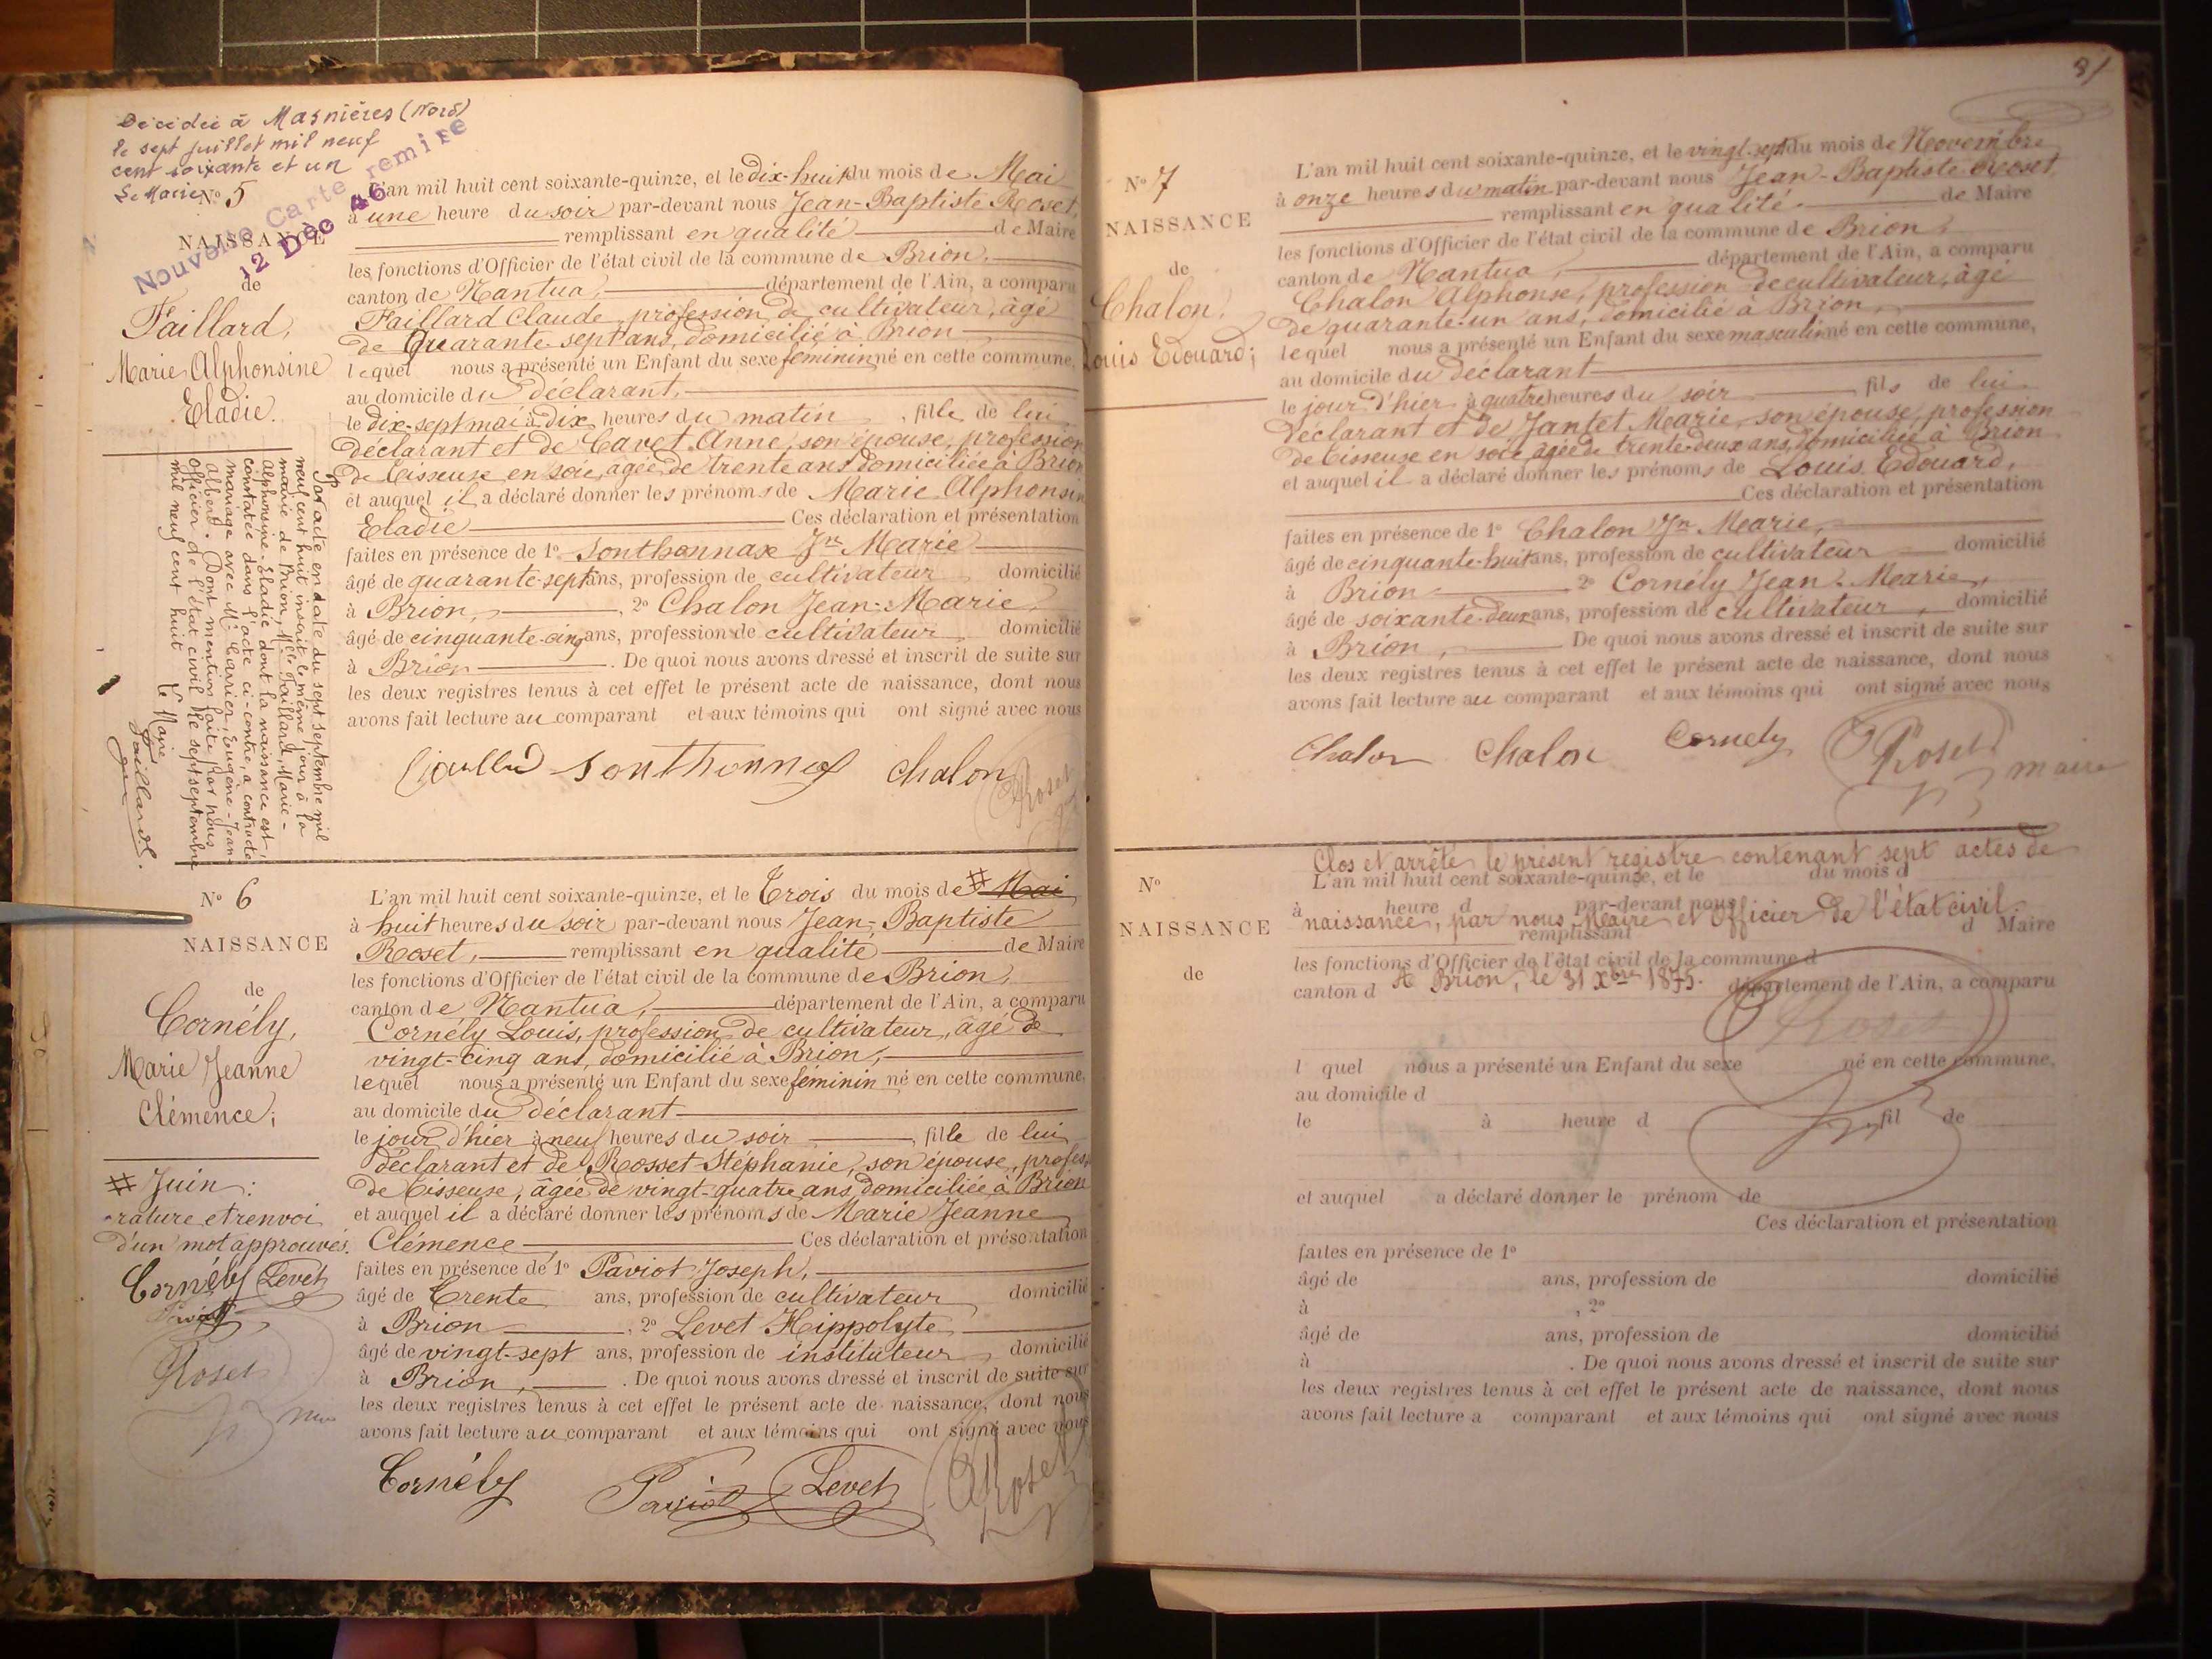 Décédée à Masnières (Nord)
le sept juillet mil neuf
cent soixante et un
Le Maire
Nouvelle Carte remise
12 Déc 46
N° 5
NAISSANCE
de
Faillard,
Marie Alphonsine
Eladie.
L'an mil huit cent soixante-quinze, et le dix-huit du mois de Mai
à une heure du soir par-devant nous Jean-Baptiste Roset,
remplissant en qualité de Maire
les fonctions d'Officier de l'état civil de la commune de Brion,
canton de Nantua, département de l'Ain, a comparu
Faillard Claude, profession de cultivateur, âgé
de Quarante-sept ans, domicilié à Brion
lequel nous a présenté un Enfant du sexe féminin né en cette commune,
au domicile du déclarant,
le dix-sept mai à dix heures du matin, fille de lui
déclarant et de Cavet Anne, son épouse, profession
de Tisseuse en soie, agée de trente ans domiciliée à Brion
et auquel il a déclaré donner les prénoms de Marie Alphonsin
Eladie Ces déclaration et présentation
faites en présence de 1° Sonthonnax Jn Marie
âgé de quarante-sept ans, profession de cultivateur, domicilié
à Brion, , 2° Chalon Jean-Marie,
âgé de cinquante-cinq ans, profession de cultivateur, domicilié
à Brion . De quoi nous avons dressé et inscrit de suite sur
les deux registres tenus à cet effet le présent acte de naissance, dont nous
avons fait lecture au comparant et aux témoins qui ont signé avec nous
Sonthonnax Chalon Roset
Par acte en date du sept septembre mil
neuf cent huit inscrit le même jour à la
mairie de Brion, Melle Faillard, Marie-
Alphonsine-Eladie dont la naissance est
constatée dans l'acte ci-contre, a contracté
mariage avec Mr Carrier, Eugène-Jean-
Albert. Dont mention faite par nous
officier de l'état civil le sept septembre
mil neuf cent huit
Le Maire
Faillard.
N° 6
NAISSANCE
de
Cornély,
Marie Jeanne
Clémence;
# Juin:
rature et renvoi
d'un mot approuvés.
Cornély Levet
Paviot
Roset
L'an mil huit cent soixante-quinze, et le Trois du mois de # Mai
à huit heures du soir, par-devant nous Jean-Baptiste
Roset, remplissant en qualité de Maire
les fonctions d'Officier de l'état civil de la commune de Brion,
canton de Nantua, département de l'Ain, a comparu
Cornély Louis, profession de cultivateur, âgé de
vingt-cinq ans, domicilié à Brion,
lequel nous a présenté un Enfant du sexe féminin né en cette commune,
au domicile du déclarant
le jour d'hier à neuf heures du soir, fille de lui
déclarant et de Rosset Stéphanie, son épouse, profess
de Tisseuse, âgée de vingt-quatre ans, domiciliée à Brion
et auquel il a déclaré donner les prénoms de Marie Jeanne
Clémence Ces déclaration et présentation
faites en présence de 1° Paviot Joseph,
âgé de Trente ans, profession de cultivateur, domicilié
à Brion, 2° Levet Hippolyte,
âgé de vingt-sept ans, profession de instituteur, domicilié
à Brion, . De quoi nous avons dressé et inscrit de suite sur
les deux registres tenus à cet effet le présent acte de naissance, dont nous
avons fait lecture au comparant et aux témoins qui ont signé avec nous
Cornély Paviot Levet Roset
N° 7
NAISSANCE
de
Chalon,
Louis Edouard;
L'an mil huit cent soixante-quinze, et le vingt-sept du mois de Novembre
à onze heures du matin par-devant nous Jean-Baptiste Roset,
remplissant en qualité. de Maire
les fonctions d'Officier de l'état civil de la commune de Brion,
canton de Nantua, département de l'Ain, a comparu
Chalon Alphonse, profession de cultivateur, âgé
de quarante-un ans, domicilié à Brion,
lequel nous a présenté un Enfant du sexe masculin né en cette commune,
au domicile du déclarant
le jour d'hier à quatre heures du soir fils de lui
déclarant et de Jantet Marie, son épouse, profession
de Tisseuse en soie, âgée de trente-deux ans, domiciliée à Brion
et auquel il a déclaré donner les prénoms de Louis Edouard,
Ces déclaration et présentation
faites en présence de 1° Chalon Jn Marie,
âgé de cinquante-huit ans, profession de cultivateur domicilié
à Brion 2° Cornély Jean-Marie,
âgé de soixante-deux ans, profession de cultivateur, domicilié
à Brion, De quoi nous avons dressé et inscrit de suite sur
les deux registres tenus à cet effet le présent acte de naissance, dont nous
avons fait lecture au comparant et aux témoins qui ont signé avec nous
Chalon Chalon Cornely Roset
maire
N°
NAISSANCE
de
Clos et arrêté le présent registre contenant sept actes de
L'an mil huit cent soixante-quinze, et le du mois d
à heure d par-devant nous
naissance, par nous, Maire et Officier de l'état civil.
remplissant d Maire
les fonctions d'Officier de l'état civil de la commune d
A Brion, le 31 Xbre 1875.
canton d département de l'Ain, a comparu
Roset
l quel nous a présenté un Enfant du sexe né en cette commune,
au domicile d
le à heure d , fil de
et auquel a déclaré donner le prénom de
Ces déclaration et présentation
faites en présence de 1°
âgé de ans, profession de domicilié
à , 2°
âgé de ans, profession de domicilié
à . De quoi nous avons dressé et inscrit de suite sur
les deux registres tenus à cet effet le présent acte de naissance, dont nous
avons fait lecture a comparant et aux témoins qui ont signé avec nous